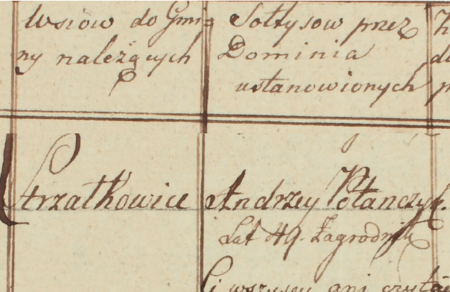 Wsiow do Gmi
ny należących
Sołtysow przez
Dominia
ustanowionych
Strzałkowice
Andrzey Potanczyk
Lat 49. Zagrodnik
Ci wszyscy ani czytać